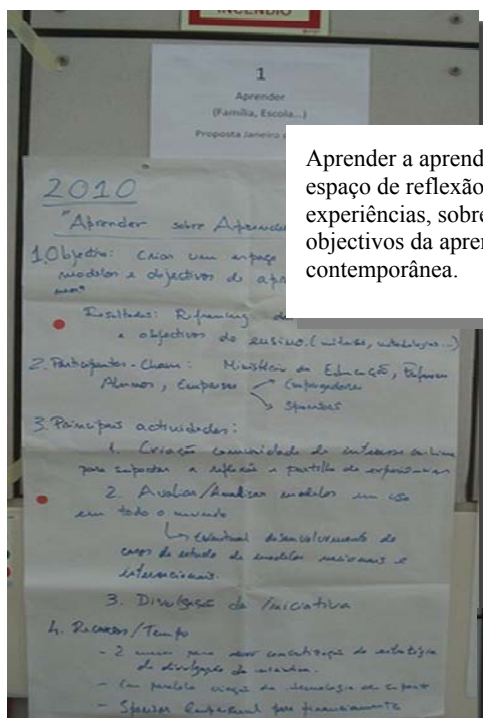 INCÊNDIO
1
Aprender
(Família, Escola...)
Proposta Janeiro
Aprender a aprend
espaço de reflexão
experiências, sobre
objectivos da apren
contemporânea.
2010
"Aprender sobre Aprender
1. Objectivo: Criar um espaço
modelos e objectivos de apr
Resultados: Reframing de
e objectivos do ensino. (métodos, metodologias...)
2. Participantes-Chave: Ministério da Educação,
Alunos, Empresas Empregadores
Sponsors
3. Principais actividades:
1. Criação comunidade de interesse on-line
para suportar a reflexão e partilha de experiências
2. Avaliar/Analisar modelos em uso
em todo o mundo
eventual desenvolvimento de
casos de estudo de modelos nacionais e
internacionais.
3. Divulgação da iniciativa
4. Recursos/Tempo
- 2 meses para concretização da estratégia
de divulgação da
- Em paralelo criação da tecnologia de suporte
- Sponsor Empresarial para financiamento